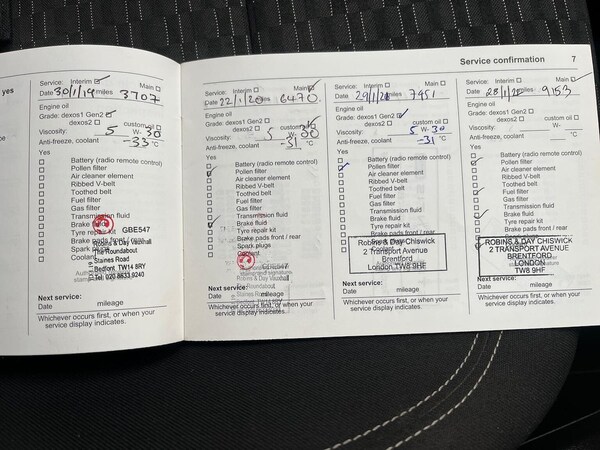 Service confirmation 7
yes
Service: Interim
Date 30/1/19 miles 3707
Engine oil
Grade: dexos1 Gen2
dexos2 custom oil
Viscosity: 5 W- 30
Anti-freeze, coolant -33 °C
Yes
Battery (radio remote control)
Pollen filter
Air cleaner element
Ribbed V-belt
Toothed belt
Fuel filter
Gas filter
Transmission fluid
Brake
Tyre repair kit
Spark plugs
Coolant
GBE547
Robins & Day Vauxhall
The Roundabout
Staines Road
Bedfont, TW14 8RY
Tel: 020 8633 9240
Next service:
Date mileage
Whichever occurs first, or when your
service display indicates.
Service: Interim Main
Date 22/1/20 miles 6470
Engine oil
Grade: dexos1 Gen2
dexos2 custom oil
Viscosity: 5 W-
Anti-freeze, coolant -31 °C
Yes
Battery (radio remote control)
Pollen filter
Air cleaner element
Ribbed V-belt
Toothed belt
Fuel filter
Gas filter
Transmission fluid
Brake fluid
Tyre repair kit
Brake pads front / rear
Spark plugs
Coolant
Robins & Day Vauxhall
The Roundabout
Next service:
Date mileage
Whichever occurs first, or when your
service display indicates.
Service: Interim Main
Date 29/1/21 miles 7951
Engine oil
Grade: dexos1 Gen2
dexos2 custom oil
Viscosity: 5 W- 30
Anti-freeze, coolant -31 °C
Yes
Battery (radio remote control)
Pollen filter
Air cleaner element
Ribbed V-belt
Toothed belt
Fuel filter
Gas filter
Transmission fluid
Brake fluid
Tyre repair kit
Brake pads front / rear
Robins & Day Chiswick
2 Transport Avenue
Brentford
London TW8 9HF
Next service:
Date mileage
Whichever occurs first, or when your
service display indicates.
Service: Interim Main
Date 28/1/ miles 9153
Engine oil
Grade: dexos1 Gen2
dexos2 custom oil
Viscosity: W-
Anti-freeze, coolant °C
Yes
Battery (radio remote control)
Pollen filter
Air cleaner element
Ribbed V-belt
Toothed belt
Fuel filter
Gas filter
Transmission fluid
Brake fluid
Tyre repair kit
Brake pads front / rear
ROBINS & DAY CHISWICK
2 TRANSPORT AVENUE
BRENTFORD
LONDON
TW8 9HF
Next service:
Date mileage
Whichever occurs first, or when your
service display indicates.